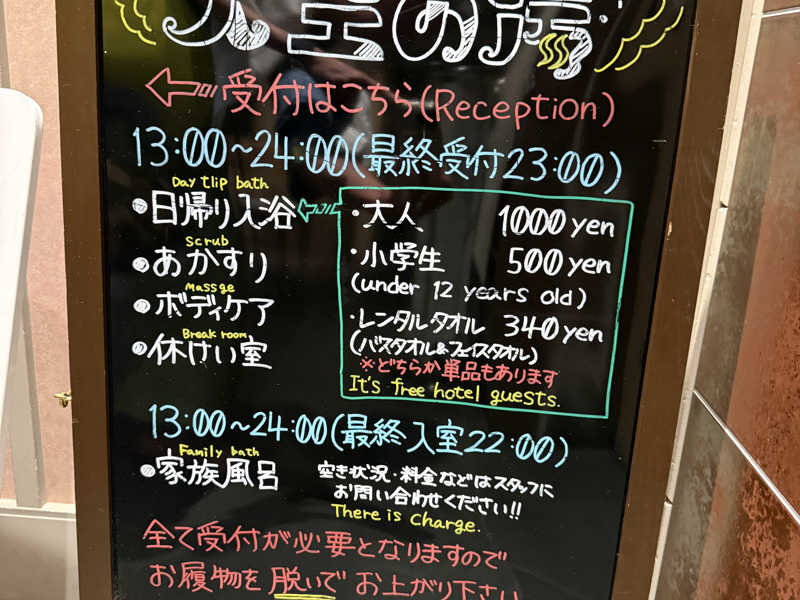 の湯
受付はこちら(Reception)
13:00~24:00(最終受付23:00)
Day tlip bath
・日帰り入浴
・大人 1000 yen
・小学生 500 yen
(under 12 years old)
・レンタルタオル 340 yen
(バスタオル&フェイスタオル)
※どちらか単品もあります
It's free hotel guests.
Scrub
・あかすり
Massge
・ボディケア
Break room
・休けい室
13:00~24:00(最終入室22:00)
Family bath
・家族風呂
空き状況・料金などはスタッフに
お問い合わせください!!
There is charge.
全て受付が必要となりますので
お履物を脱いでお上がり下さい